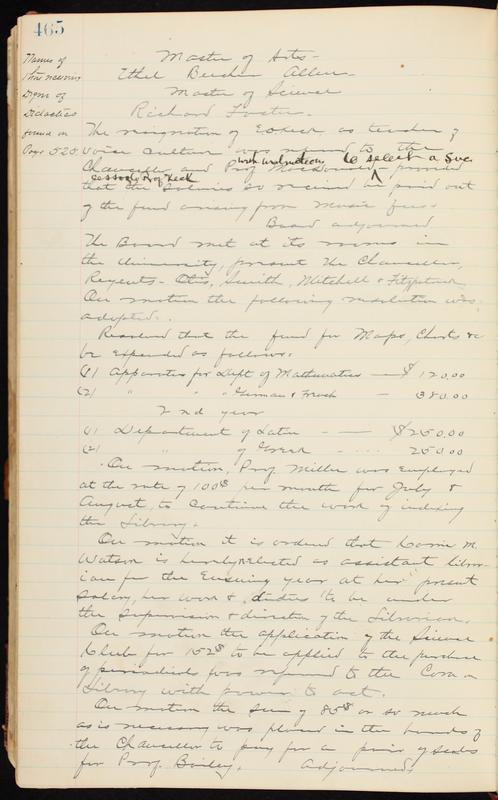 465
Names of
nine
Dipms of
Didactics
found on
Page 525
Master of Arts -
Ethel Beecher Allen -
Master of Science
Richard Foster.
The resignation of Eoheck as teacher of
voice culture was referred to the
with instructions to select a Suc
Chancellor and Prof MacDonald - provided
cessor of Prof Heck
that the Salaries so received be paid out
of the fund arising from Music fees -
Board adjourned
The Board met at its rooms in
the University, present the Chancellor,
Regents - Otis, Smith, Mitchell & Fitzpatrick
On motion the following resolution was
adopted.
Resolved that the fund for Maps, Charts &c
be expended as follows:
(1) Apparatus for Dept of Mathematics — $120.00
(2) " " " German & French — 380.00
2nd year
(1) Department of Latin - — $250.00
(2) " of Greek - ... 250.00
On motion, Prof. Miller was employed
at the rate of 100$ per month for July &
August, to continue the work of indexing
the Library.
On motion it is ordered that Carrie M.
Watson is hereby reelected as assistant libra-
ian for the Ensuing year at her present
salary, her work & duties to be under
the supervision & direction of the Librarian.
On motion the application of the Science
Club for 152$ to be applied to the purchase
of periodicals was referred to the Com. on
Library with power to act.
On motion the sum of 85$ or so much
as is necessary was placed in the hands of
the Chancellor to pay for a pair of scales
for Prof. Bailey. Adjourned